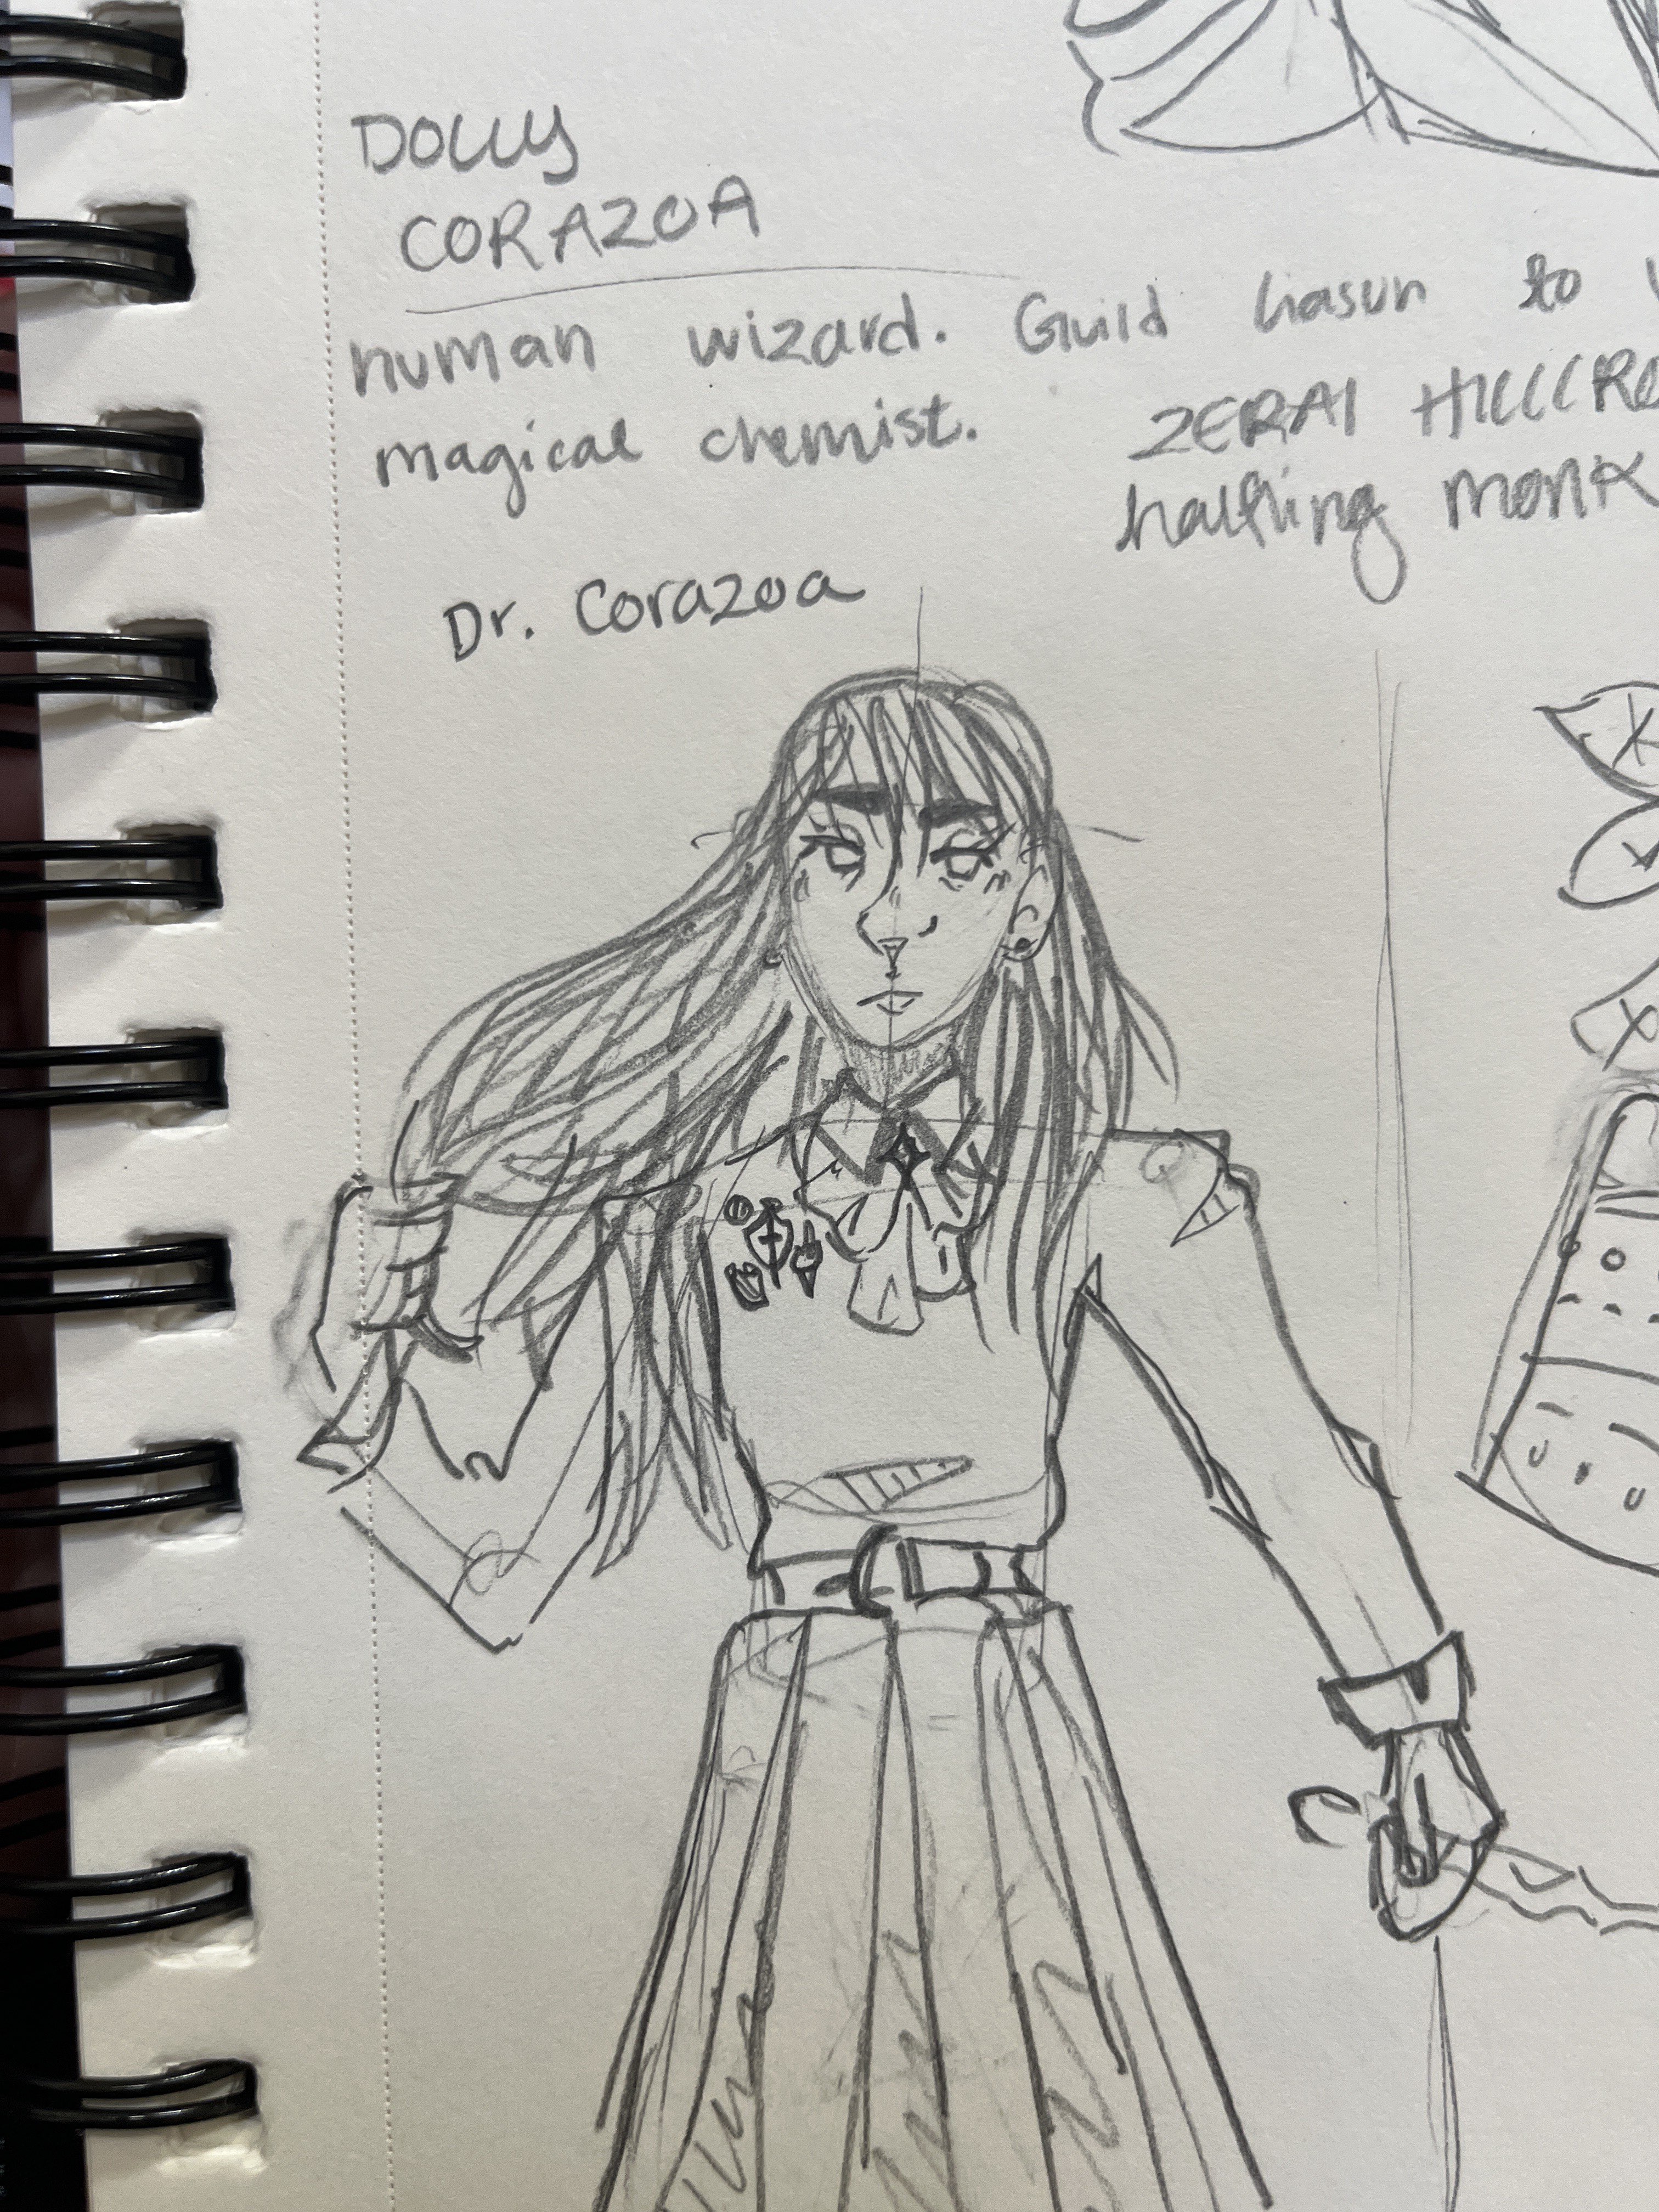 DOLLY
CORAZOA
human wizard. Guild liason to
magical chemist.
ZERAI HILLCR
halfling monk
Dr. Corazoa